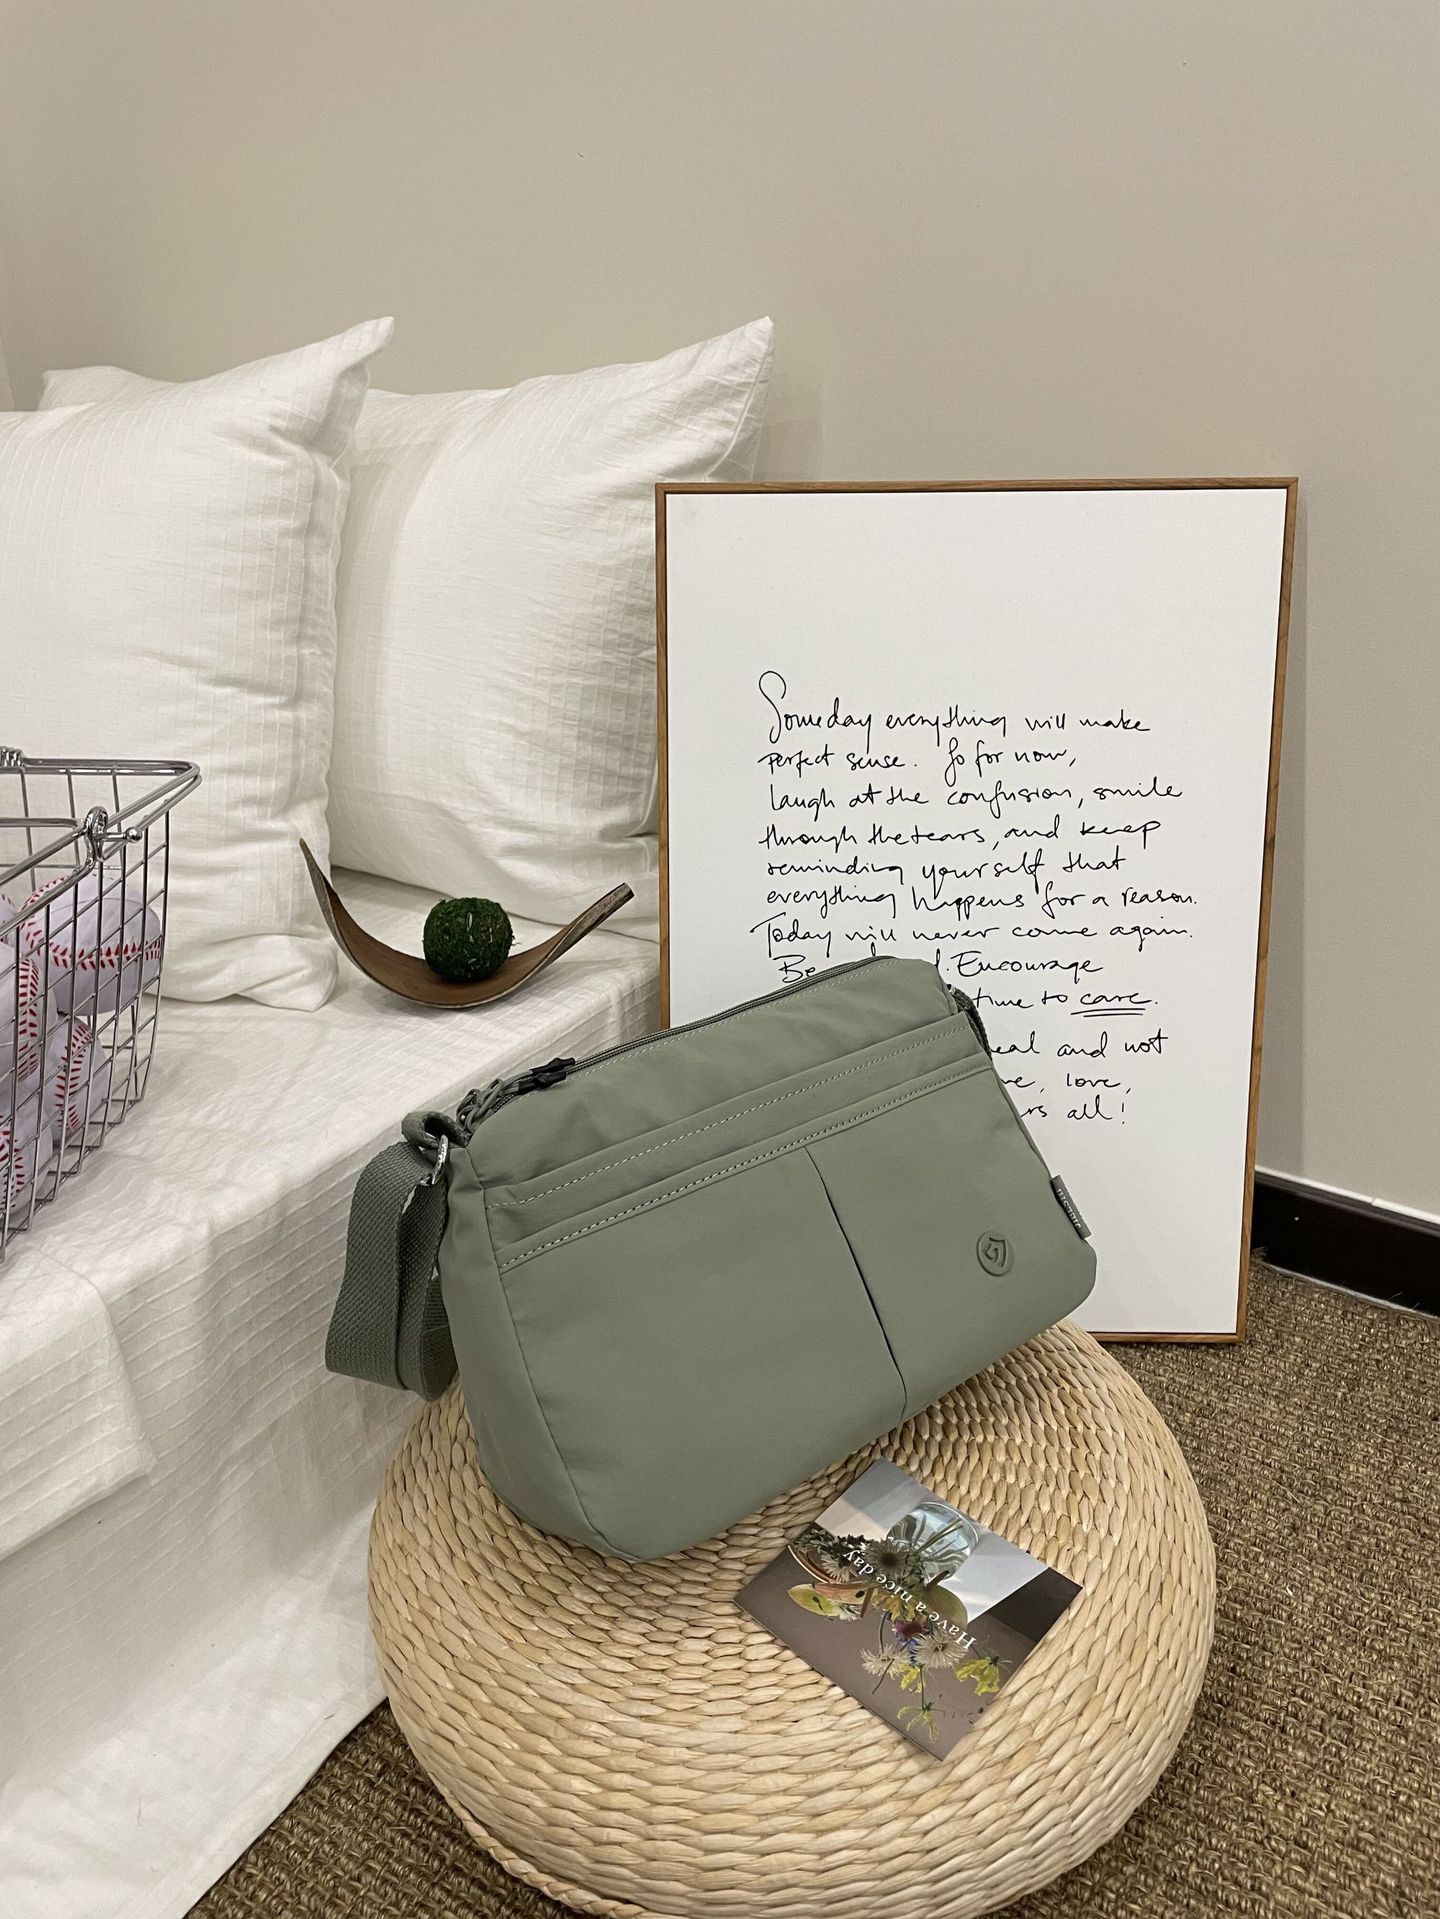 Someday everything will make
perfect sense. So for now,
laugh at the confusion, smile
through the tears, and keep
reminding yourself that
everything happens for a reason.
Today will never come again.
Be
Encourage
time to care.
and not
love,
all!
Have a nice day